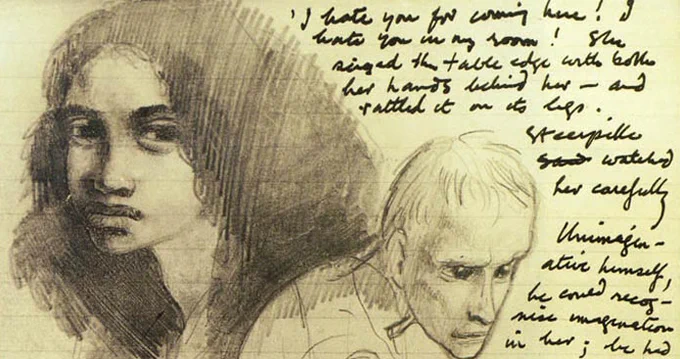 'I hate you for coming here! I
hate you in my room! She
seized the table edge with both
her hands behind her — and
rattled it on its legs.
Steerpike
said watched
her carefully
Unimagin-
ative himself,
he could recog-
nise imagination
in her; he had